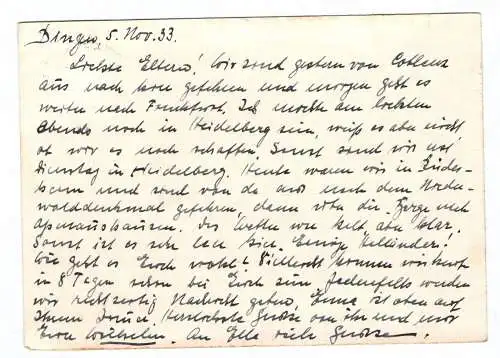 Bingen, 5. Nov. 33.
Liebste Eltern! Wir sind gestern von Coblenz
aus nach hier gefahren und morgen geht es
weiter nach Frankfurt. Ich möchte am liebsten
abends noch in Heidelberg sein, weiß es aber nicht
ob wir es noch schaffen. Sonst sind wir
Dienstag in Heidelberg. Heute waren wir in Rüdes-
heim und sind von da aus nach dem Nieder-
walddenkmal gefahren, dann über die Berge nach
Assmannshausen. Das Wetter war kalt, aber klar.
Sonst ist es sehr leer hier. Einige Holländer!
Wie geht es Euch wohl? Vielleicht kommen wir heut
in 8 Tagen schon bei Euch. Jedenfalls werden
wir rechtzeitig Nachricht geben. ist oben auf
Ihrem Herzlichste Grüße von ihr und
Euer Wilhelm. An Ella viele Grüße.